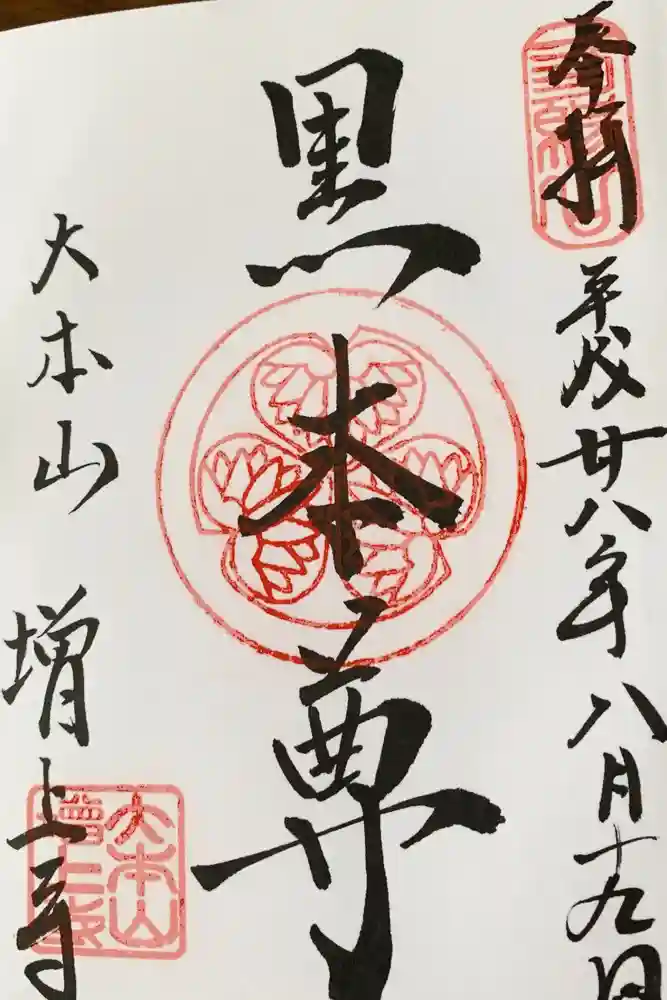 奉拝
平成廿八年八月十九日
黒本尊
大本山 増上寺
大本山
増上寺